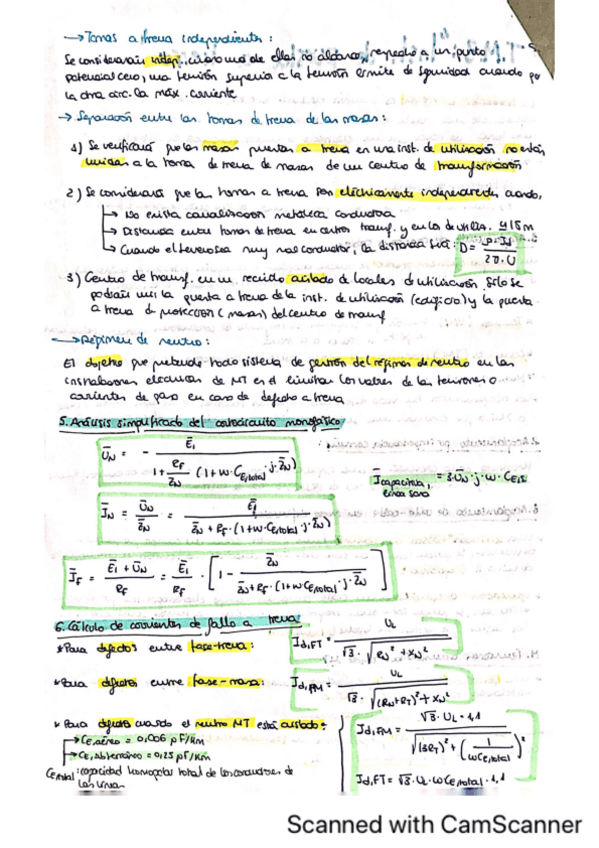 → Tomas a tierra independientes:
Se considerarán indep. cuando una de ellas no alcance, respecto a un punto
potencial cero, una tensión superior a la tensión límite de seguridad cuando por
la otra circ. la máx. corriente
→ Separación entre las tomas de tierra de las masas:
1) Se verificará que las masas puestas a tierra en una inst. de utilización no están
unidas a la toma de tierra de masas de un centro de transformación
2) Se considerará que las tomas a tierra son eléctricamente independientes cuando,
↳ No exista canalización metálica conductora
↳ Distancia entre tomas de tierra en centros transf. y en los de utiliza. 15m
↳ Cuando el terreno sea muy mal conductor, la distancia será: D = ρ·Id / 2π·U
3) Centro de transf. en un recinto aislado de locales de utilización. Sólo se
podrán unir la puesta a tierra de la inst. de utilización (edificio) y la puesta
a tierra de protección (masas) del centro de transf
→ Régimen de neutro:
El objetivo que pretende todo sistema de gestión del régimen de neutro en las
instalaciones eléctricas de MT es el limitar los valores de las tensiones o
corrientes de paso en caso de defecto a tierra
5. Análisis simplificado del cortocircuito monofásico
U̅N = - E̅1 / (1 + RF/Z̅N (1+w·CE,total·j·Z̅N))
I̅capacitiva, línea sana = 3·U̅N·j·w·CE,S
I̅N = U̅N / Z̅N = E̅1 / (Z̅N + RF·(1+w·CE,total·j·Z̅N))
I̅F = (E̅1 + U̅N) / RF = E̅1 / RF · [1 - Z̅N / (Z̅N + RF·(1+w·CE,total·j·Z̅N))]
6. Cálculo de corrientes de fallo a tierra
* Para defectos entre fase-tierra: Id,FT = UL / (√3·√(RN² + XN²))
* Para defectos entre fase-masa: Id,FM = UL / (√3·√((RN+RT)² + XN²))
* Para defectos cuando el neutro MT está aislado:
→ CE,aéreo = 0,006 µF/Km
→ CE,subterráneo = 0,25 µF/Km
CE,total: capacidad homopolar total de los conductores de
las líneas
Id,FM = √3·UL·1,1 / √((3RT)² + (1/(wCE,total))²)
Id,FT = √3·UL·wCE,total·1,1
Scanned with CamScanner